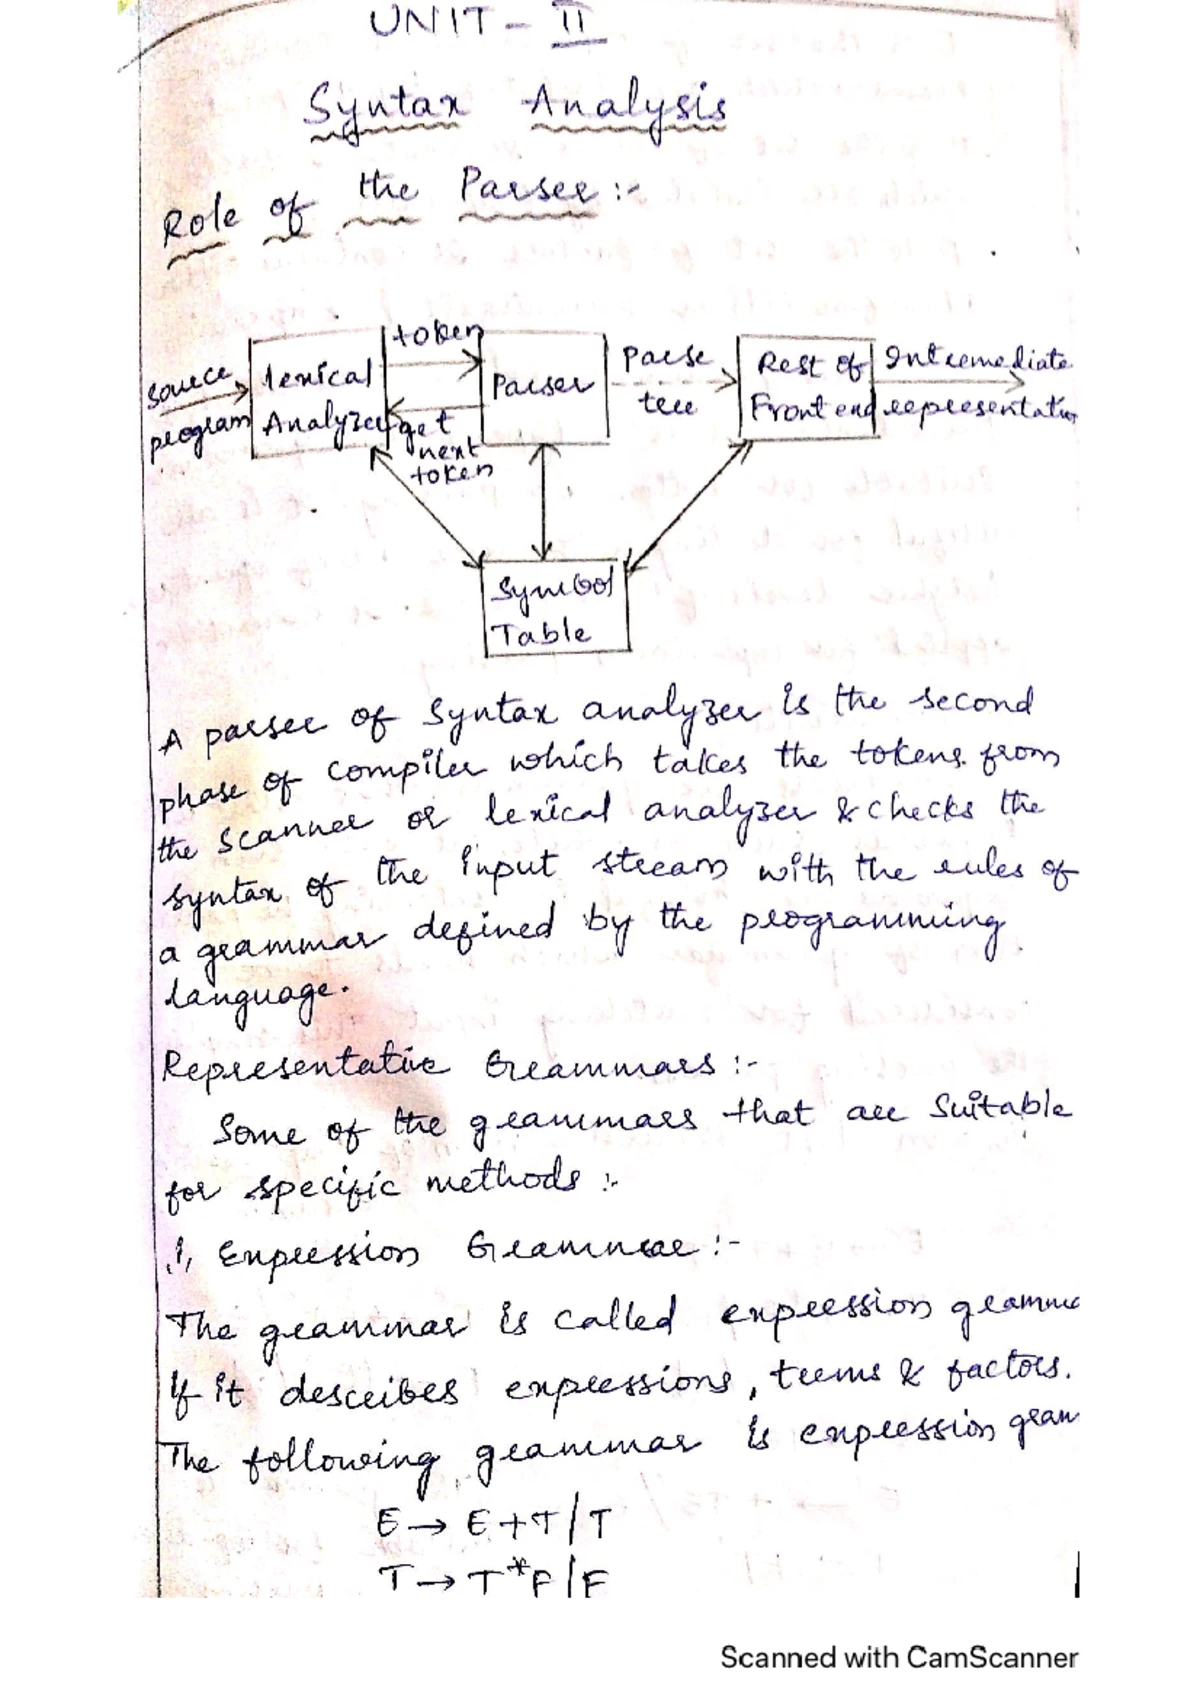 UNIT - II
Syntax Analysis
Role of the Parser :-
source program
lexical Analyzer
token
get next token
Parser
Parse tree
Rest of Front end
Intermediate representation
Symbol Table
A parser of syntax analyzer is the second
phase of compiler which takes the tokens from
the scanner or lexical analyzer & checks the
syntax of the input stream with the rules of
a grammar defined by the programming
language.
Representative Grammars :-
Some of the grammars that are suitable
for specific methods :-
1, Expression Grammar :-
The grammar is called expression gramma
if it describes expressions, terms & factors.
The following grammar is expression gram
E → E+T/T
T → T*F/F
Scanned with CamScanner